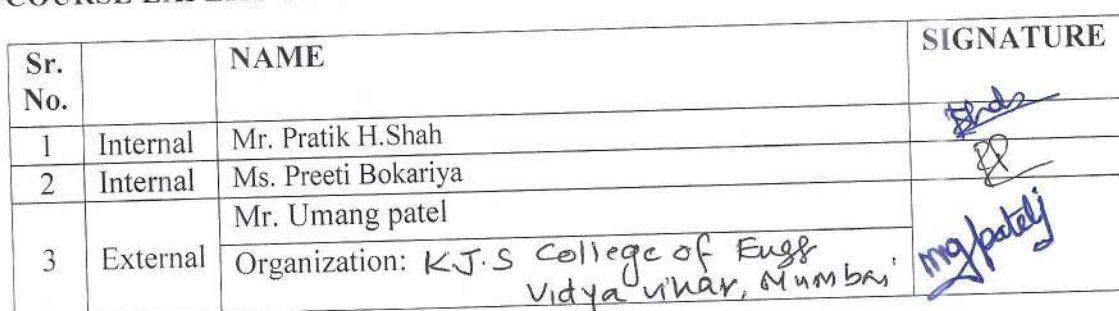 Sr. No. NAME SIGNATURE
1 Internal Mr. Pratik H.Shah
2 Internal Ms. Preeti Bokariya
3 External Mr. Umang patel
Organization: K.J.S College of Engg
Vidya vihar, Mumbai